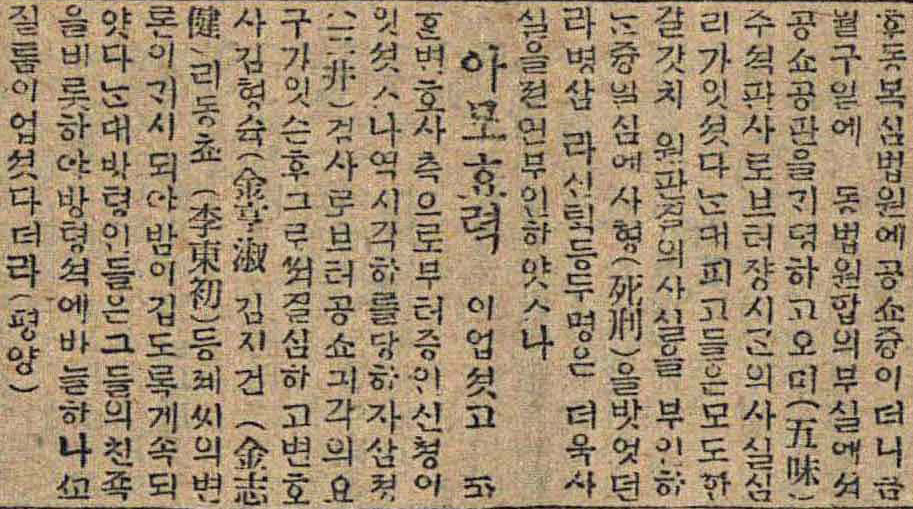 동복심법원에공소즁이더니금
월구일에 동법원합의부실에셔
공소공판을기뎡하고오미(五味)
주석판사로브터쟝시간의사실심
리가잇섯다는대피고들은모도한
갈갓치 원판결의사실을 부인하
는즁일심에사형(死刑)을밧엇던
라병삼 라신퇴등두명은 더욱사
실을젼연부인하얏스나
아모효력 이업섯고 또
한변호사측으로부터증인신청이
잇섯스나역시각하를당하자삼정
(三井)검사로브터공소긔각의요
구가잇슨후그로써결심하고변호
사김형숙(金亨淑 김지건 (金志
健)리동쵸 (李東初)등제씨의변
론이기시되야밤이깁도록계속되
얏다는대방텽인들은그들의친족
을비롯하야방텽석에바늘하나꼬
질틈이업섯다더라(평양)